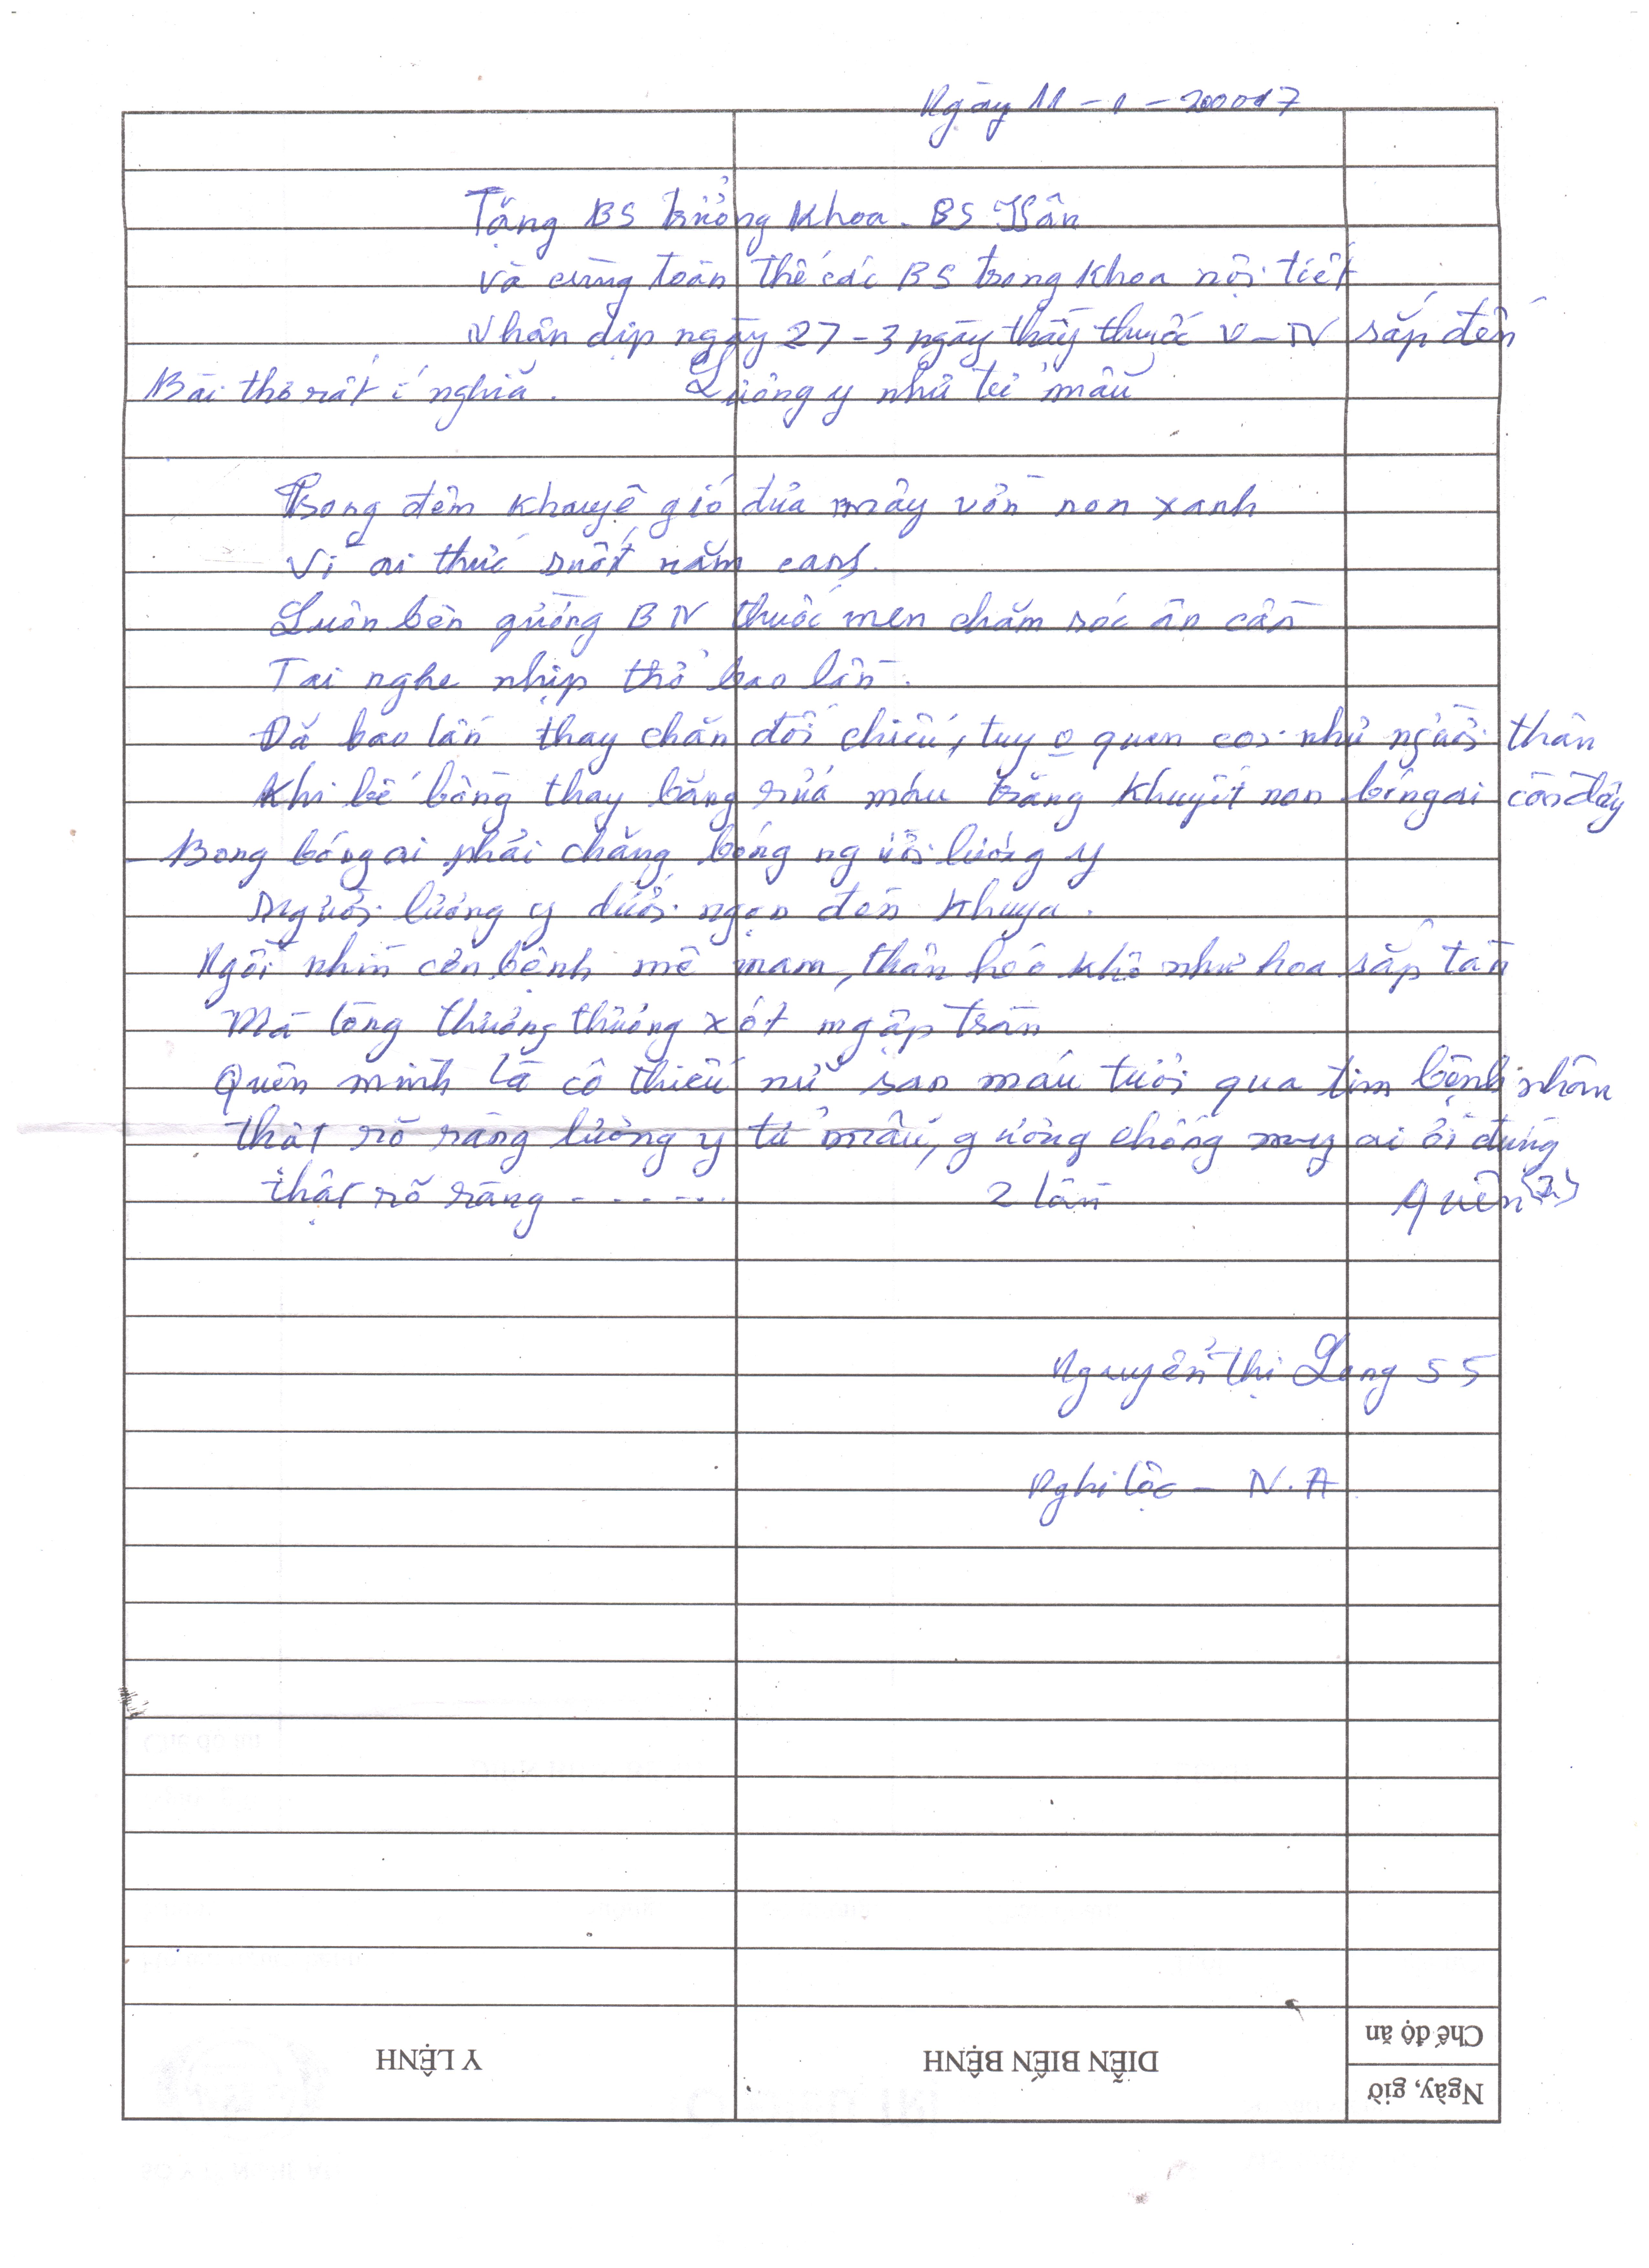 Ngày 11 - 1 - 200017
Tặng BS trưởng khoa. BS Hân
và cùng toàn thể các BS trong khoa nội tiết
Nhân dịp ngày 27-3 ngày thầy thuốc V-N sắp đến
Bài thơ rất í nghĩa. Lương y như từ mẫu
Trong đêm khuyê gió đưa mây vờn non xanh
Vì ai thức suốt năm canh.
Luôn bên gường BN thuốc men chăm sóc ân cần
Tai nghe nhịp thở bao lần.
Đã bao lần thay chăn đổi chiếu, tuy o quen coi như người thân
Khi bế bồng thay băng rửa máu trăng khuyết non bóng ai còn đây
- Bong bóng ai phải chăng bóng người lương y
Người lương y dưới ngọn đèn khuya.
Ngồi nhìn cơn bệnh mê mam, thân héo khô như hoa sắp tàn
Mà lòng thương thương xót ngập tràn
Quên mình là cô thiếu nữ san máu tươi qua tim bệnh nhân
thật rõ ràng lương y từ mẫu, gường chồng ai ơi đừng
thật rõ ràng - - - - - - 2 lần quên (2)
Nguyễn Thị Long 55
Nghi lộc - N.A
Chế độ ăn
Y LỆNH DIỄN BIẾN BỆNH
Ngày, giờ